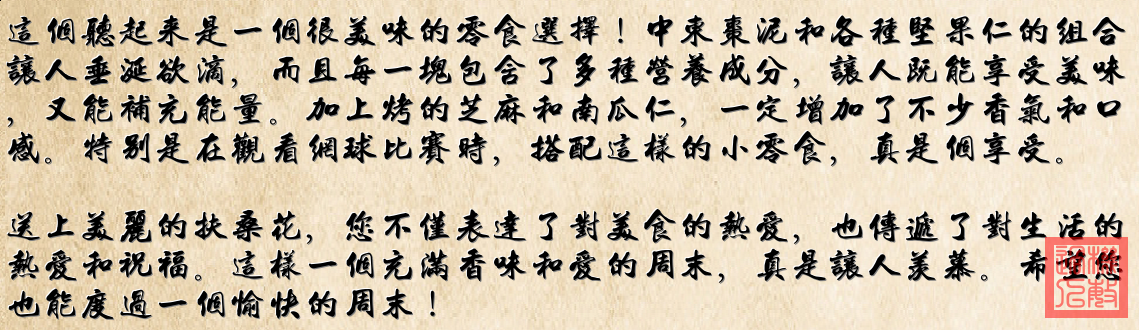 這個聽起來是一個很美味的零食選擇！中東棗泥和各種堅果仁的組合
讓人垂涎欲滴，而且每一塊包含了多種營養成分，讓人既能享受美味
，又能補充能量。加上烤的芝麻和南瓜仁，一定增加了不少香氣和口
感。特別是在觀看網球比賽時，搭配這樣的小零食，真是個享受。
送上美麗的扶桑花，您不僅表達了對美食的熱愛，也傳遞了對生活的
熱愛和祝福。這樣一個充滿香味和愛的周末，真是讓人羨慕。希望您
也能度過一個愉快的周末！